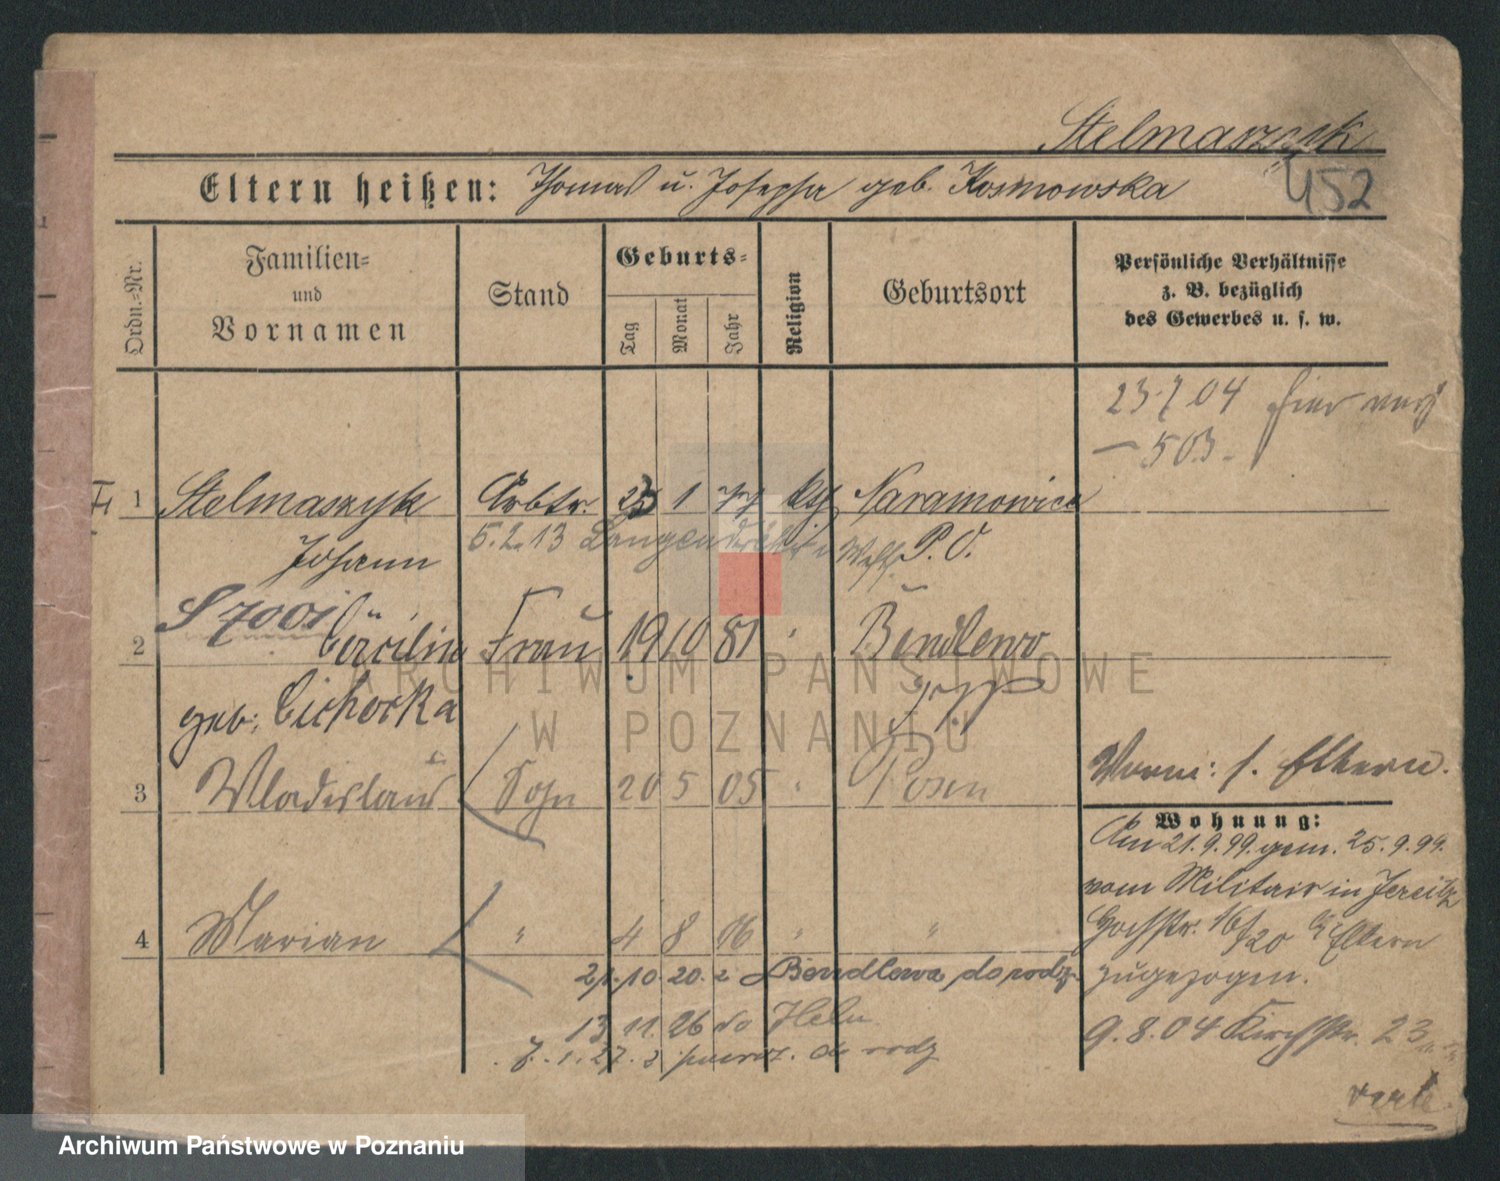 Stelmaszyk
452
Eltern heißen: Thomas u. Josepha geb. Kosmowska
Ordn.-Nr.
Familien-
und
Vornamen
Stand
Geburts-
Tag
Monat
Jahr
Religion
Geburtsort
Persönliche Verhältnisse
z. B. bezüglich
des Gewerbes u. s. w.
23.7.04 hier
503.
1 Stelmaszyk Arbtr. 23 1 77 kg Naramowice
Johann 5.2.13 P. O.
2 Cäcilie Frau 19 10 81 " Bendlewo
geb. Cichocka
3 Wladislaus Sohn 20 5 05 " Posen
Vorm: s. Eltern.
Wohnung:
Am 21.9.99. gem. 25.9.99.
vom Militair in Jersitz
Hochstr. 16/20 Eltern
zugezogen.
9.8.04 Kirchstr. 23
4 Marian " 4 8 16 " "
21.10.20. z Bendlewa do rodz.
13 11. 26 do Helu
7.1.27. z powrot. do rodz
verte.
ARCHIWUM PAŃSTWOWE
W POZNANIU
Archiwum Państwowe w Poznaniu